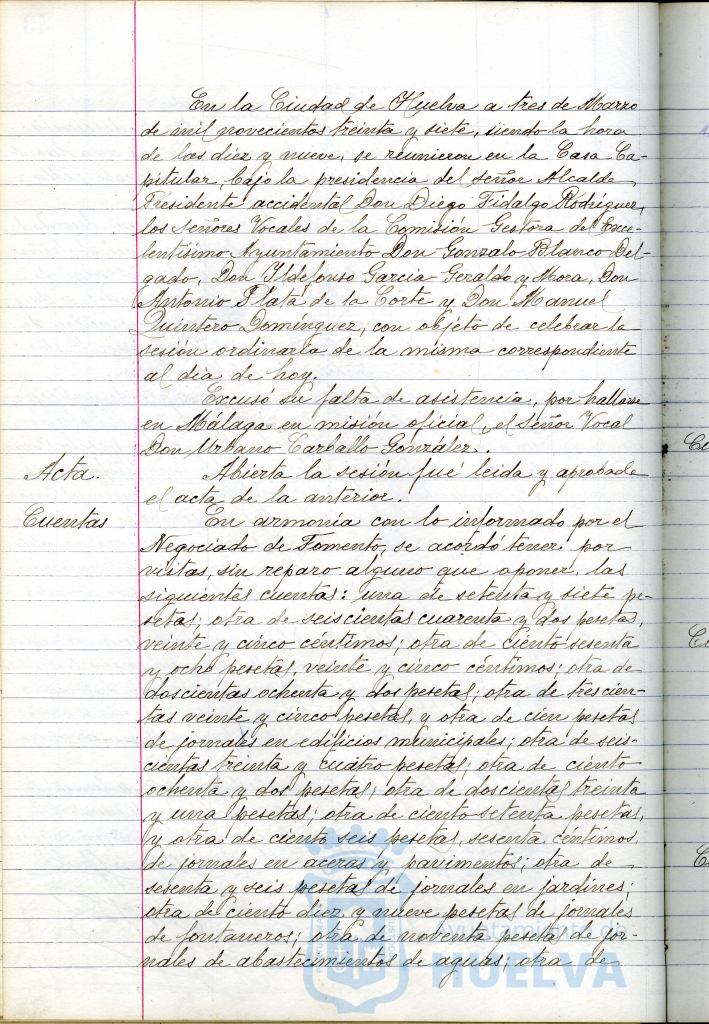 En la Ciudad de Huelva a tres de Marzo
de mil novecientos treinta y siete, siendo la hora
de las diez y nueve, se reunieron en la Casa Ca-
pitular, bajo la presidencia del señor Alcalde
Presidente accidental Don Diego Fidalgo Rodríguez,
los señores Vocales de la Comisión Gestora del Exce-
lentísimo Ayuntamiento Don Gonzalo Blanco Del-
gado, Don Ildefonso García-Geraldo y Mora, Don
Antonio Plata de la Corte y Don Manuel
Quintero Domínguez, con objeto de celebrar la
sesión ordinaria de la misma correspondiente
al día de hoy.
Excusó su falta de asistencia, por hallarse
en Málaga en misión oficial, el señor Vocal
Don Urbano Carballo González.
Acta. Abierta la sesión fué leida y aprobada
el acta de la anterior.
Cuentas En armonía con lo informado por el
Negociado de Fomento, se acordó tener por
vistas, sin reparo alguno que oponer, las
siguientes cuentas: una de setenta y siete pe-
setas; otra de seiscientas cuarenta y dos pesetas,
veinte y cinco céntimos; otra de ciento sesenta
y ocho pesetas, veinte y cinco céntimos; otra de
doscientas ochenta y dos pesetas; otra de trescien-
tas veinte y cinco pesetas, y otra de cien pesetas
de jornales en edificios municipales; otra de seis-
cientas treinta y cuatro pesetas; otra de ciento
ochenta y dos pesetas; otra de doscientas treinta
y una pesetas; otra de ciento setenta pesetas,
y otra de ciento seis pesetas, sesenta céntimos,
de jornales en aceras y pavimentos; otra de
setenta y seis pesetas de jornales en jardines;
otra de ciento diez y nueve pesetas de jornales
de fontaneros; otra de noventa pesetas de jor-
nales de abastecimientos de aguas; otra de
Ayuntamiento de
HUELVA